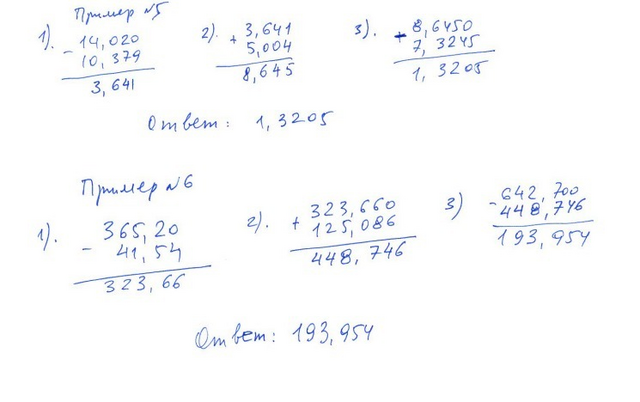 Пример №5
1). 14,020 2). 3,641 3). 8,6450
- 10,379 + 5,004 + 7,3245
3,641 8,645 1,3205
Ответ: 1,3205
Пример №6
1). 365,20 2). 323,660 3) 642,700
- 41,54 + 125,086 - 448,746
323,66 448,746 193,954
Ответ: 193,954